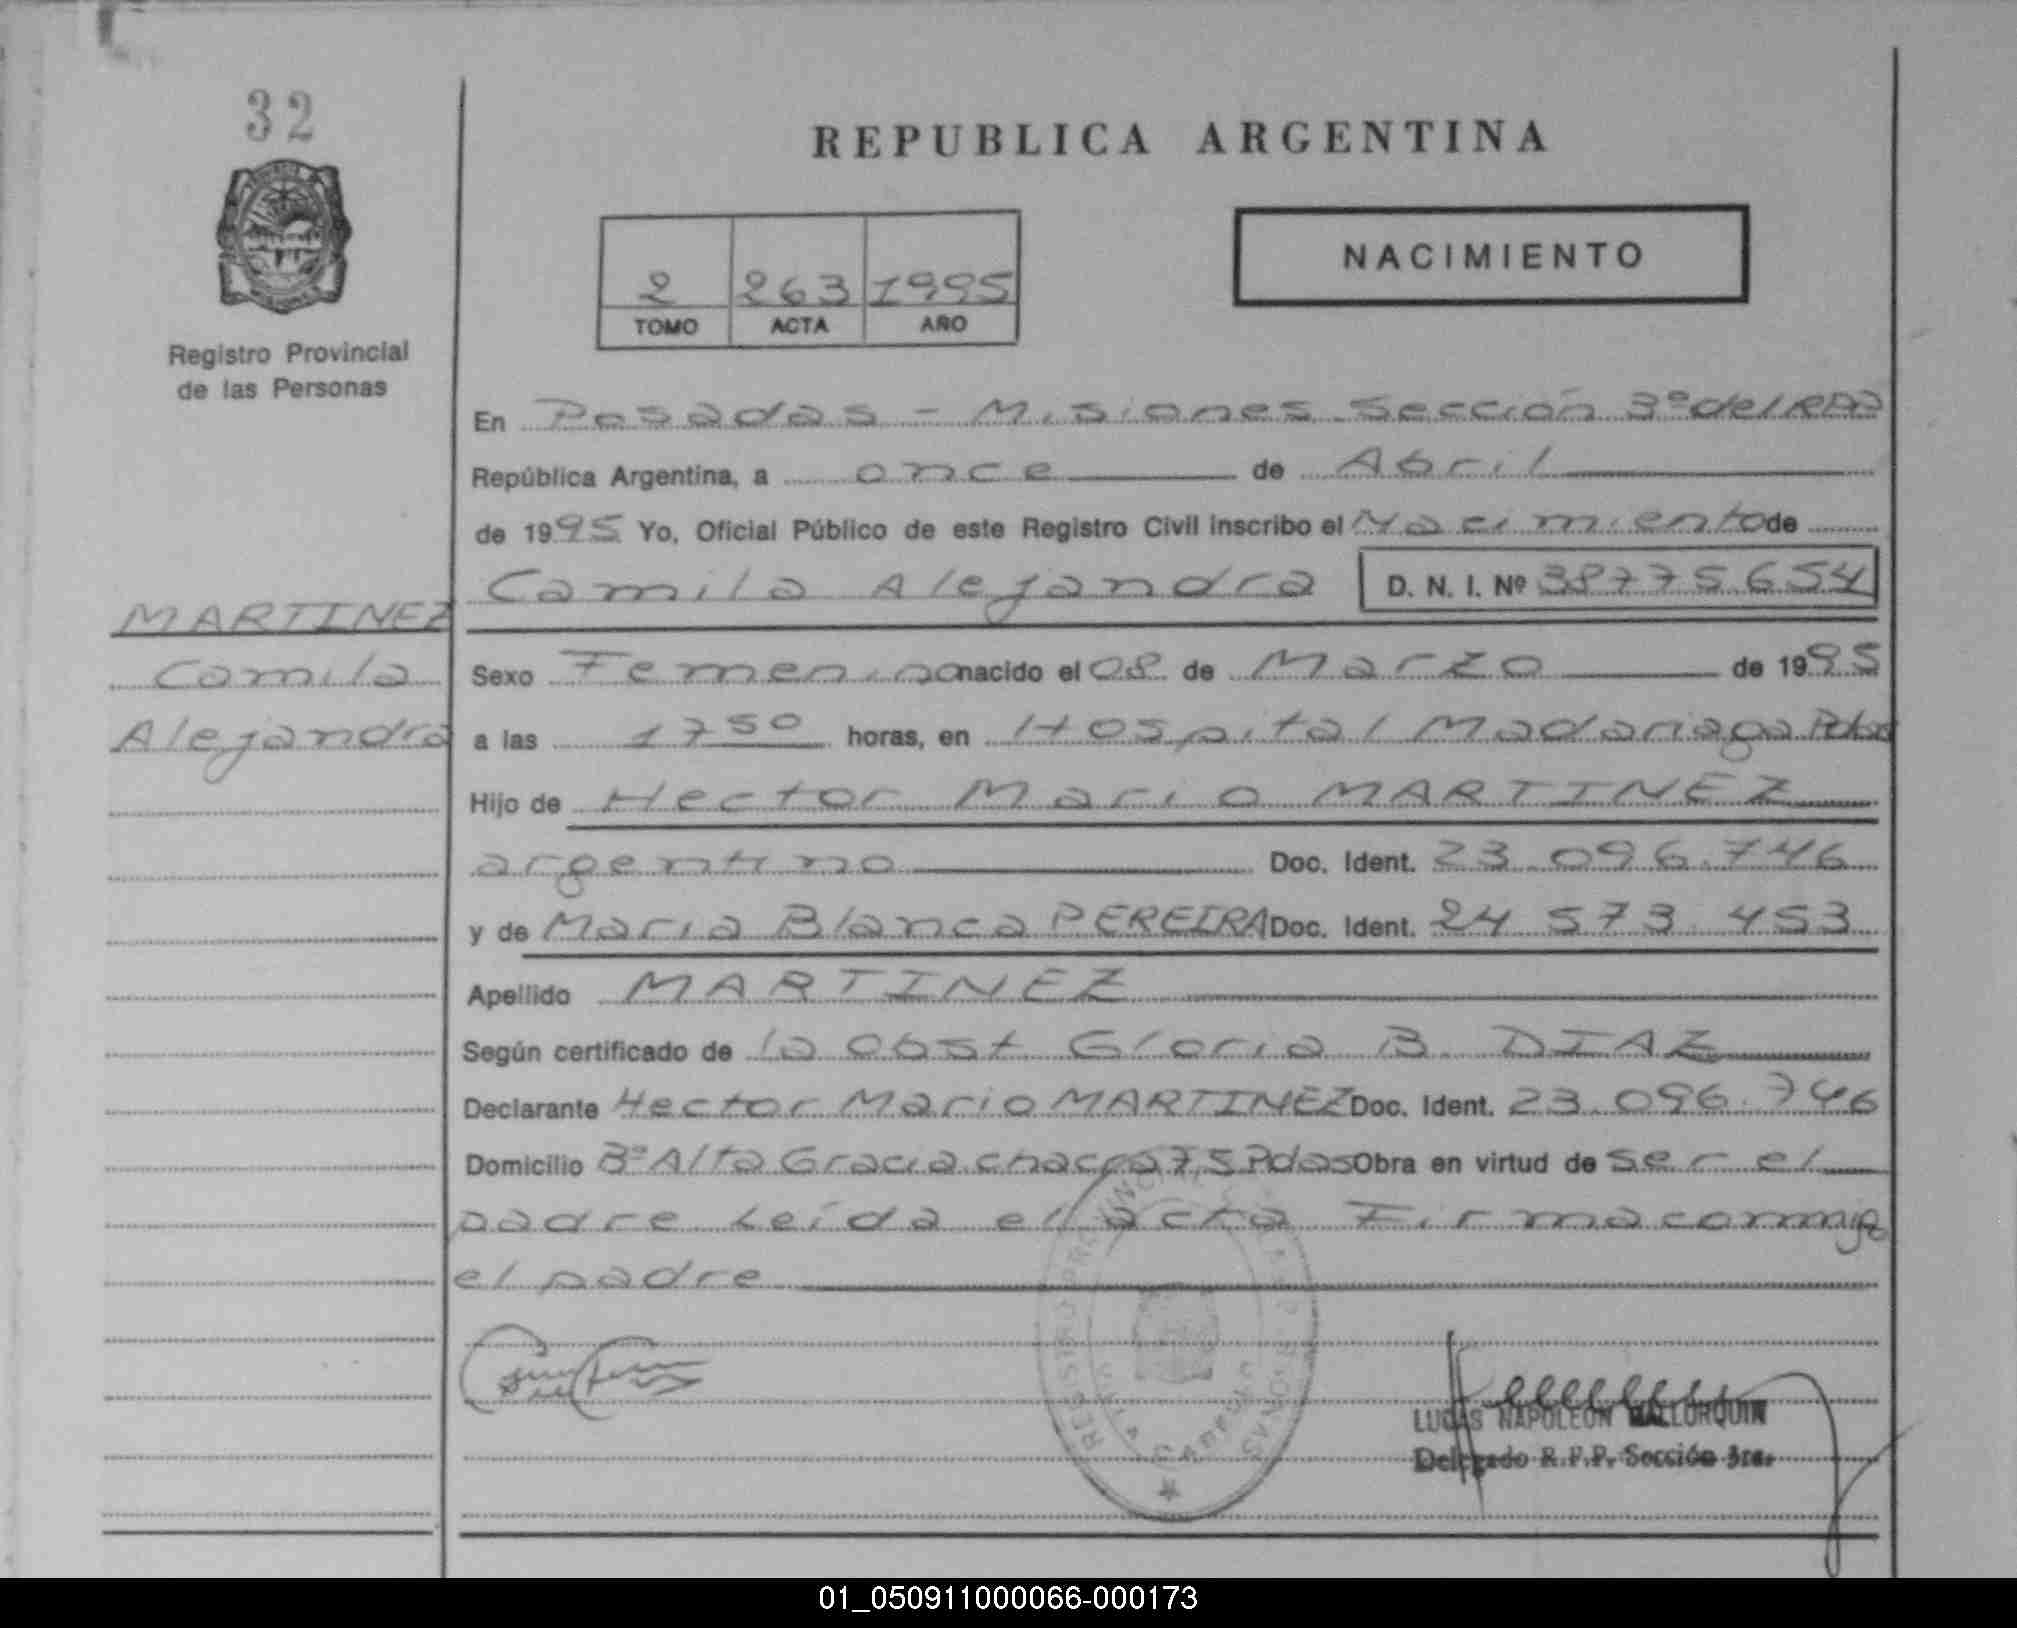 32
Registro Provincial
de las Personas
MARTINEZ
Camila
Alejandra
REPUBLICA ARGENTINA
2 263 1995
TOMO ACTA AÑO
NACIMIENTO
En Posadas - Misiones Sección 3º del RPP
República Argentina, a once de Abril
de 1995 Yo, Oficial Público de este Registro Civil inscribo el Nacimiento de
Camila Alejandra D. N. I. Nº 38775654
Sexo Femenino nacido el 08 de Marzo de 1995
a las 17 50 horas, en Hospital Madariaga
Hijo de Hector Mario MARTINEZ
argentino Doc. Ident. 23.096.746
y de Maria Blanca PEREIRA Doc. Ident. 24 573 453
Apellido MARTINEZ
Según certificado de la Obst Gloria B. DIAZ
Declarante Hector Mario MARTINEZ Doc. Ident. 23.096.746
Domicilio Bº Alta Gracia chacra 75 Pdas Obra en virtud de ser el
padre Leída el acta Firma conmigo
el padre
REGISTRO PROVINCIAL DE LAS PERSONAS
LUCAS NAPOLEON MALLORQUIN
Delegado R.P.P. Sección 3ra.
01_050911000066-000173